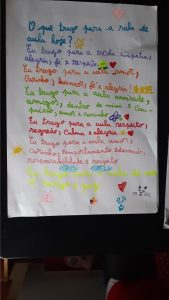 O que trago para a sala de
aula hoje?
Eu trago para a escola simpatia,
alegria, fé e respeito
Eu trago para a aula amor,
Carinho, humor, fé e alegria!
Eu trago para a aula amizade,
amigos, dentro de mim e
amor e carinho
Eu trago para a aula respeito,
segredo, Calma e alegria
Eu trago para a aula amor,
Carinho, comportamento educação,
responsabilidade e respeito
Eu trago para a sala de